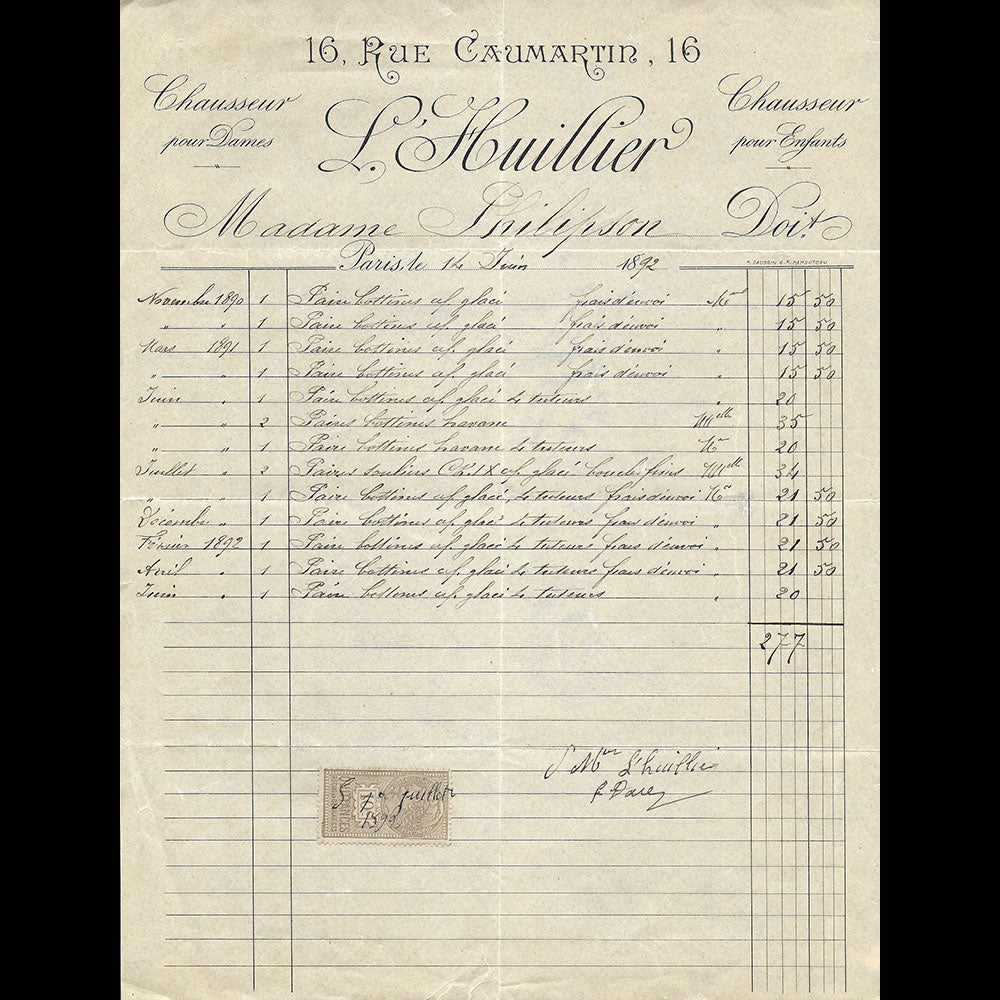 16, Rue Caumartin, 16
Chausseur pour Dames
L. L'Huillier
Chausseur pour Enfants
Madame Philipson Doit
Paris, le 14 Juin 1892
Novembre 1890 1 Paire bottines chf. glacé frais d'envoi 15 50
" " 1 Paire bottines chf. glacé frais d'envoi " 15 50
Mars 1891 1 Paire bottines chf. glacé frais d'envoi " 15 50
" " 1 Paire bottines chf. glacé frais d'envoi " 15 50
Juin " 1 Paire bottines chf. glacé & tuteurs " 20
" " 2 Paires bottines havane Melle 35
" " 1 Paire bottines havane & tuteurs 20
Juillet " 2 Paires souliers Ch. IX chf. glacé boucles fines Melle 34
" 1 Paire bottines chf. glacé & tuteurs frais d'envoi 21 50
Décembre " 1 Paire bottines chf. glacé & tuteurs frais d'envoi " 21 50
Février 1892 1 Paire bottines chf. glacé & tuteurs frais d'envoi " 21 50
Avril " 1 Paire bottines chf. glacé & tuteurs frais d'envoi " 21 50
Juin " 1 Paire bottines chf. glacé & tuteurs " 20
277
L'huillier
juillet
1892